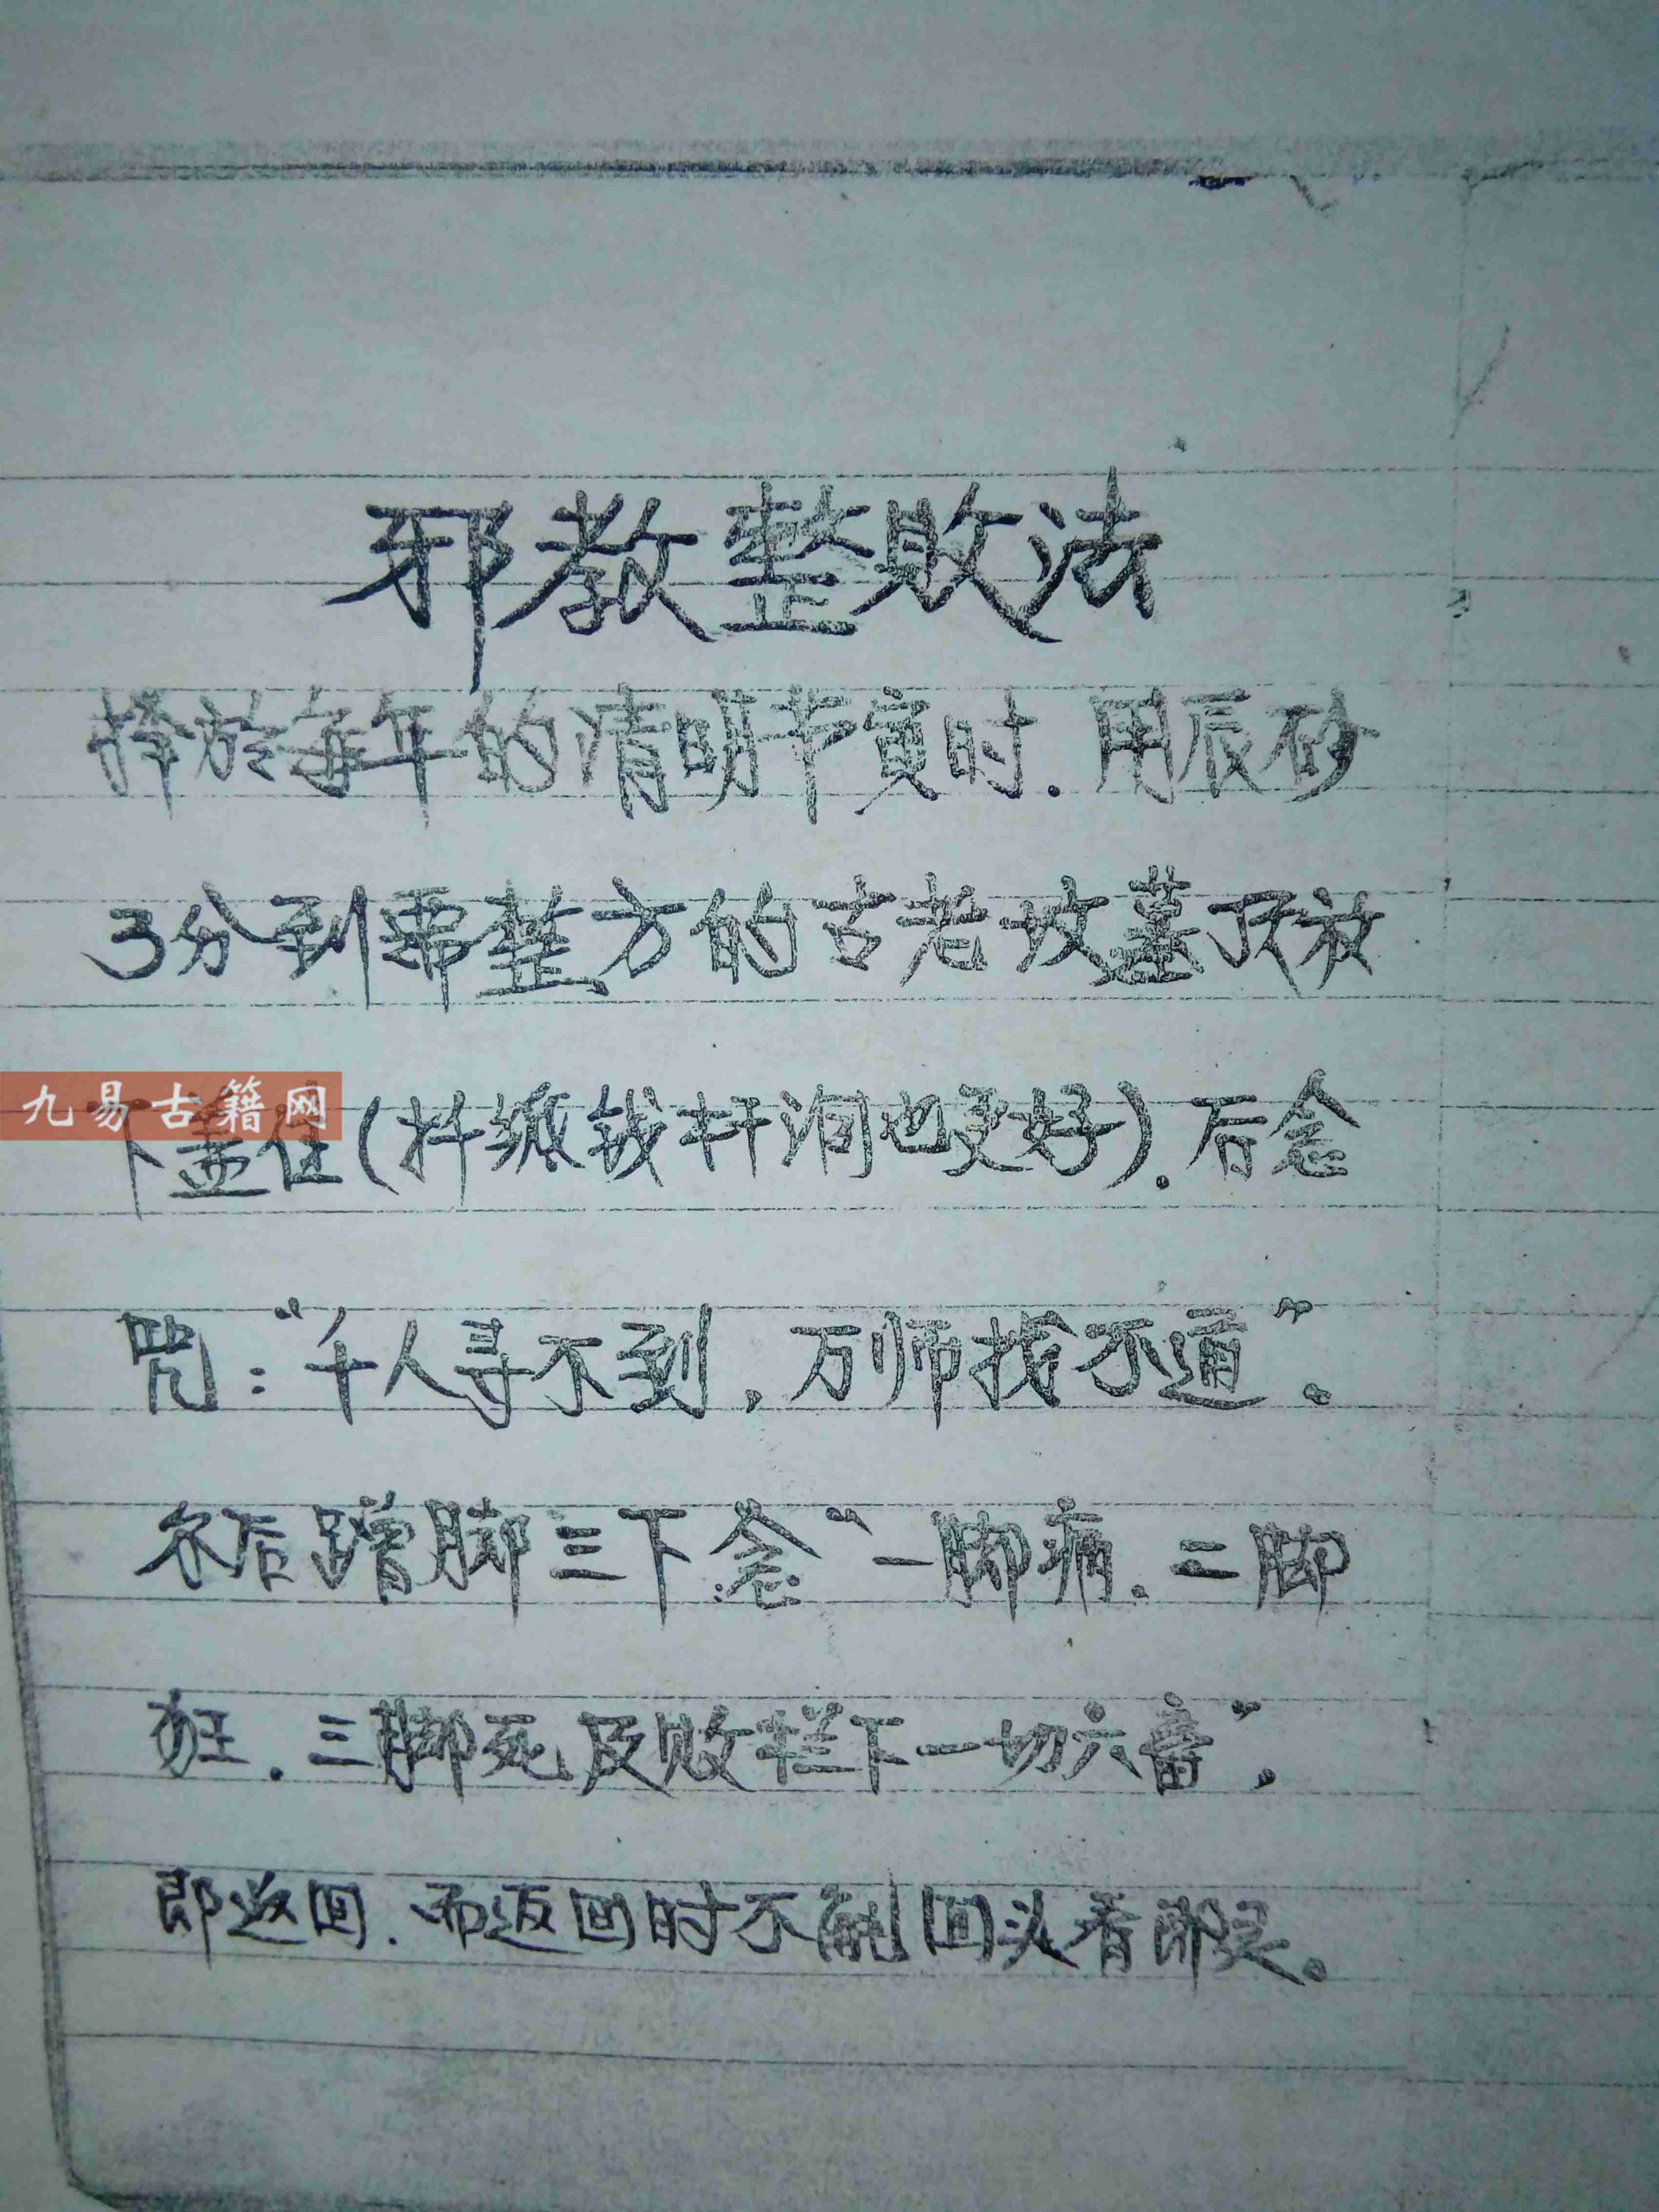 邪教整败法
择於每年的清明节寅时.用辰砂
3分到需整方的古老坟墓顶放
九易古籍网
下盖住(扦纸钱杆洞也更好).后念
咒:“千人寻不到,万师找不通”。
尔后蹭脚三下念“一脚痛.二脚
狂.三脚死及败栏下一切六畜”,
即返回.而返回时不能回头看即灵。